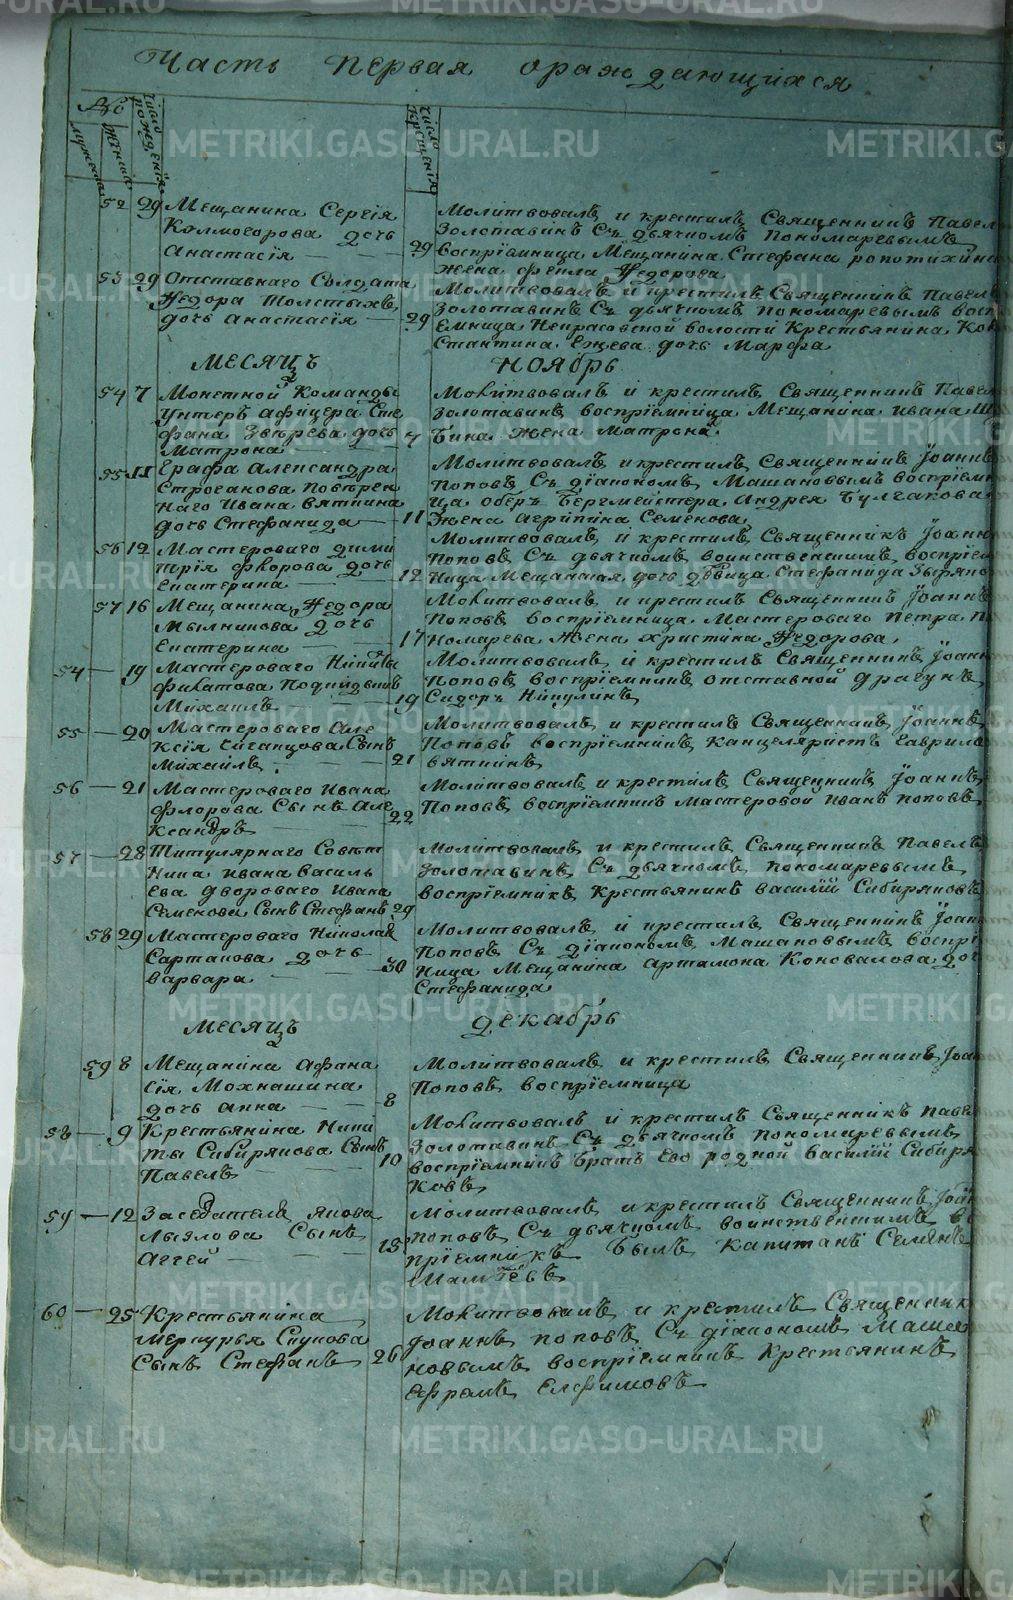 Часть первая ораждающихся
№
мужеска
женска
число рожденія
число крещенія
52 29 Мещанина Сергія
Колмогорова дочь
Анастасія
29
Молитвовалъ и крестилъ Священникъ Павелъ
Золотавинъ Съ дьячкомъ Пономаревымъ
воспріемница Мещанина Стефана
жена Фекла Федорова
53 29 Отставнаго Солдата
Федора Толстыхъ
дочь Анастасія
29
Молитвовалъ и крестилъ Священникъ Павелъ
Золотавинъ Съ дьячкомъ пономаревымъ воспрі
емница Некрасовской волости Крестьянина Кон
стантина Ежева дочь Марфа
МЕСЯЦЪ НОЯБРЬ
54 7 Монетной Команды
Унтеръ афицера Сте
фана Зверева дочь
Матрона
7
Молитвовалъ и крестилъ Священникъ Павелъ
Золотавинъ воспріемница Мещанина ивана
бина жена Матрона
55 11 Графа Александра
Строганова Поверен
наго Ивана вяткина
дочь Стефанида
11
Молитвовалъ и крестилъ Священникъ Іоаннъ
Поповъ Съ діакономъ Машановымъ воспріемни
ца оберъ Бергмейстера Андрея Булгакова
жена агрипіна Семенова
56 12 Мастероваго дими
трія флорова дочь
Екатерина
12
Молитвовалъ и крестилъ Священникъ Іоаннъ
Поповъ Съ дьячкомъ воинственскимъ воспріем
ница Мещанская дочь девица Стефанида
57 16 Мещанина Федора
Мылникова дочь
Екатерина
17
Молитвовалъ и крестилъ Священникъ Іоаннъ
Поповъ воспріемница Мастероваго Петра По
номарева жена христина Федорова
54 19 Мастероваго Никиты
филатова Подкидышъ
Михаилъ
19
Молитвовалъ и крестилъ Священникъ Іоаннъ
Поповъ воспріемникъ отставной драгунъ
Сидоръ Никулинъ
55 20 Мастероваго Але
ксія Сынъ
Михайлъ
21
Молитвовалъ и крестилъ Священникъ Іоаннъ
Поповъ воспріемникъ Канцеляристъ Гаврило
вяткинъ
56 21 Мастероваго Ивана
флорова Сынъ Але
ксандръ
22
Молитвовалъ и крестилъ Священникъ Іоаннъ
Поповъ воспріемникъ Мастеровой иванъ поповъ
57 28 Титулярнаго Совет
ника ивана Василь
ева двороваго ивана
Семенова Сынъ Стефанъ
29
Молитвовалъ и крестилъ Священникъ Павелъ
Золотавинъ Съ дьячкомъ пономаревымъ
воспріемникъ Крестьянинъ василій Сибиряковъ
58 29 Мастероваго Николая
Сартакова дочь
варвара
30
Молитвовалъ и крестилъ Священникъ Іоаннъ
Поповъ Съ діакономъ Машановымъ воспріем
ница Мещанина артамона Коновалова дочь
Стефанида
МЕСЯЦЪ ДЕКАБРЬ
59 8 Мещанина Афана
сія Мохнашина
дочь анна
8
Молитвовалъ и крестилъ Священникъ Іоаннъ
Поповъ воспріемница
58 9 Крестьянина Ники
ты Сибирякова Сынъ
Павелъ
10
Молитвовалъ и крестилъ Священникъ Павелъ
Золотавинъ Съ дьячкомъ пономаревымъ
воспріемникъ братъ его родной василій Сибиря
ковъ
59 12 Заседателя якова
Сынъ
Аггей
13
Молитвовалъ и крестилъ Священникъ Іоаннъ
поповъ Съ дьячкомъ воинственскимъ вос
пріемникъ былъ Капитанъ Семенъ
60 25 Крестьянина
меркурья Скукова
Сынъ Стефанъ
26
Молитвовалъ и крестилъ Священникъ
Іоаннъ поповъ Съ діакономъ Маша
новымъ воспріемникъ Крестьянинъ
Ефремъ Елфимовъ
METRIKI.GASO-URAL.RU